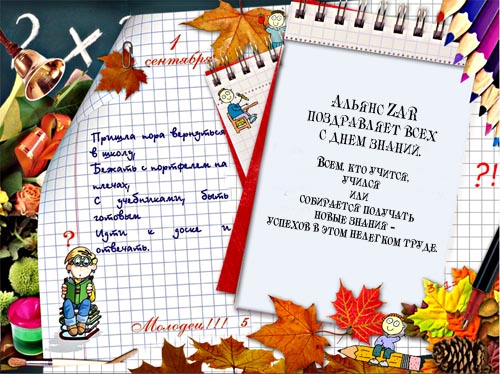 ? × 2
1
сентября
Пришла пора вернуться
в школу,
Бежать с портфелем на
плечах,
С учебниками, быть
готовым
Идти к доске и
отвечать.
?
Молодец!!! 5
Альянс ZAR
поздравляет всех
с днем знаний.
Всем, кто учится,
учился
или
собирается получать
новые знания -
успехов в этом нелегком труде.
?!